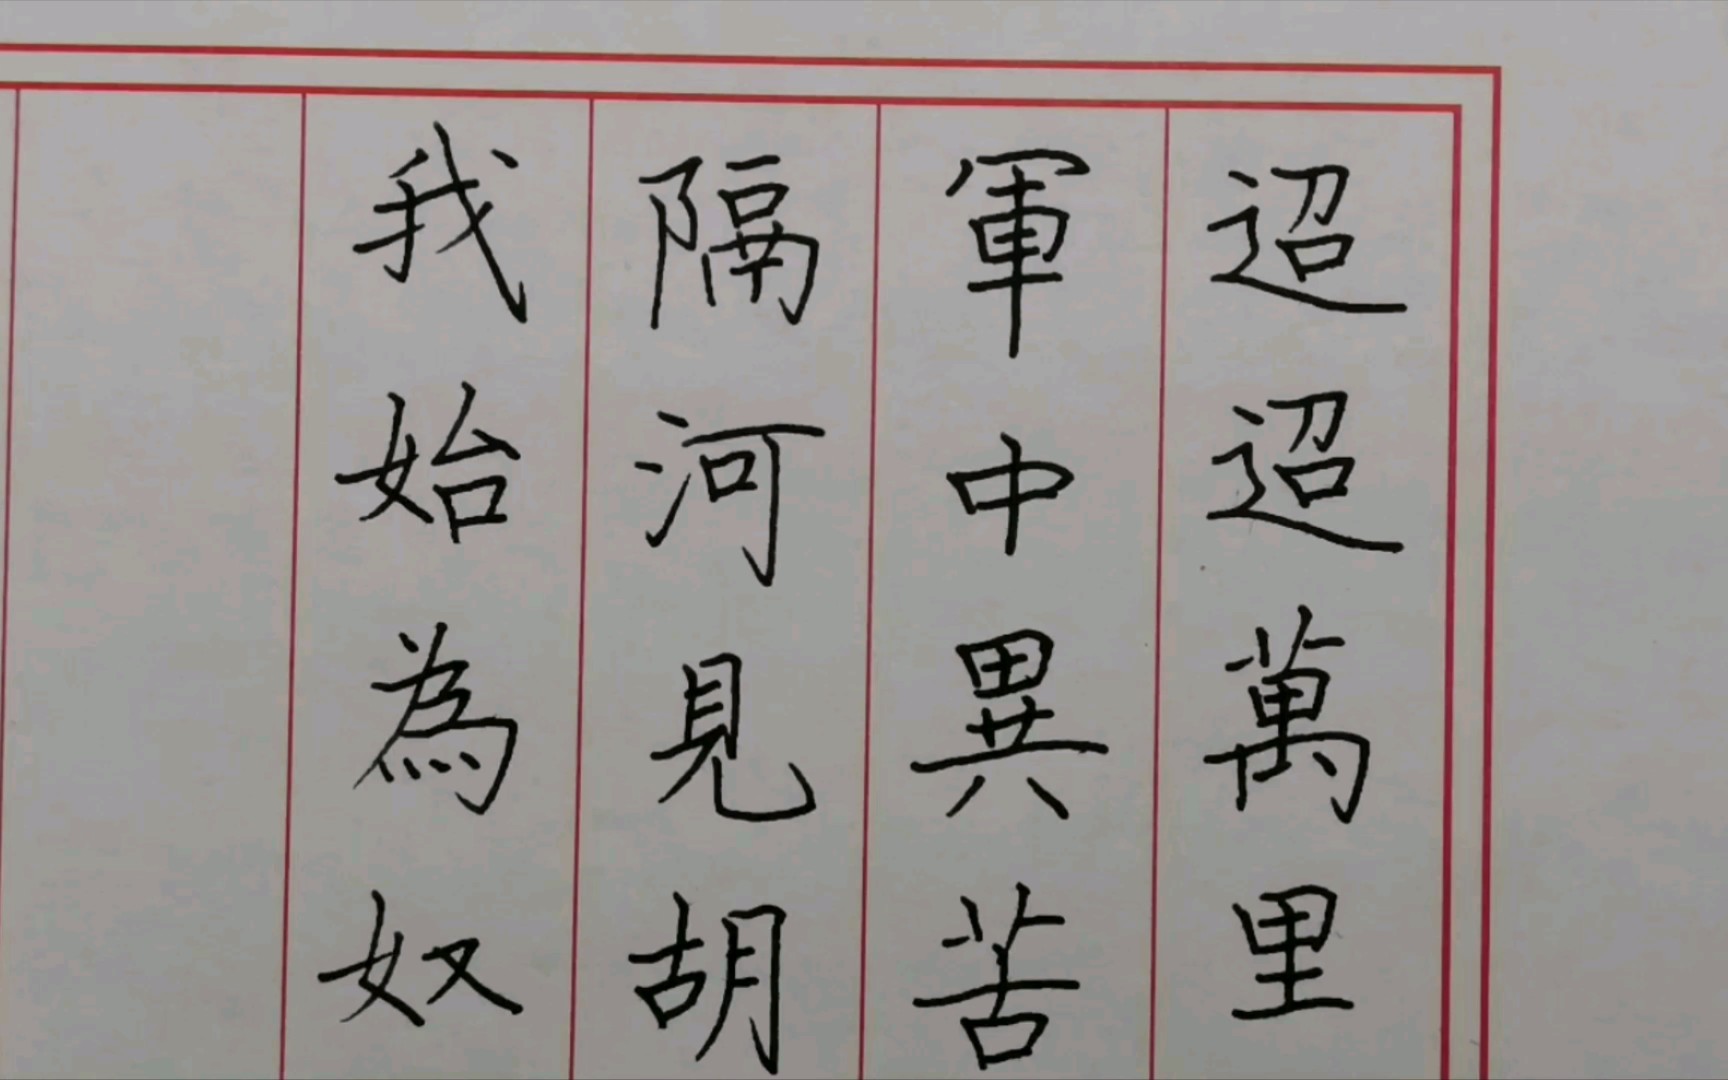 迢迢萬里
軍中異苦
隔河見胡
我始為奴